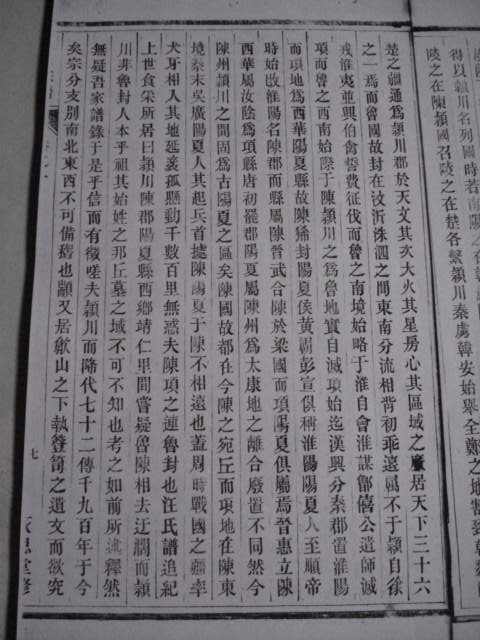 得以潁川名列國時若南陽之在
陵之在陳潁國召陵之在楚各繫潁川秦虜韓安始舉全鄭之地置到
楚之疆通為潁川郡於天文其次大火其星房心其區域之廠居天下三十六
之一焉而魯國故封在忮沂洙泗之間東南分流相背初乖遠屬不于潁自徐
戎淮夷並興伯禽誓費征伐而魯之南境始略于淮自會淮謀鄫僖公遣師滅
項而魯之西南始際于陳潁川之為魯地實自滅項始迄漢興分秦郡置淮陽
而項地為西華陽夏縣故陳豨封陽夏侯黃霸彭宣俱稱淮陽陽夏人至順帝
時始改淮陽名陳郡而縣屬陳晉武合陳於梁國而項陽夏俱屬焉晉惠立陳
西華屬汝陰為項縣唐初罷郡陽夏屬陳州為太康地之離合廢置不同然今
陳州潁川之間固為古陽夏之區矣陳國故都在今陳之宛丘而項地在陳東
境秦末吳廣陽夏人其起兵首據陳陽夏于陳不相遠也蓋周時戰國之疆率
犬牙相入其地延袤孤懸動千數百里無惑夫陳項之連魯封也汪氏譜追紀
上世食采所居曰潁川陳郡陽夏縣西鄉靖仁里間嘗疑魯陳相去迂濶而潁
川非魯封人本乎祖其始姓之邦丘墓之域不可不知也考之如前所述釋然
無疑吾家譜錄于是乎信而有徵嗟夫潁川而降代七十二傳千九百年于今
矣宗分支別南北東西不可備稽也顓又居歙山之下執簦笥之遺文而欲究